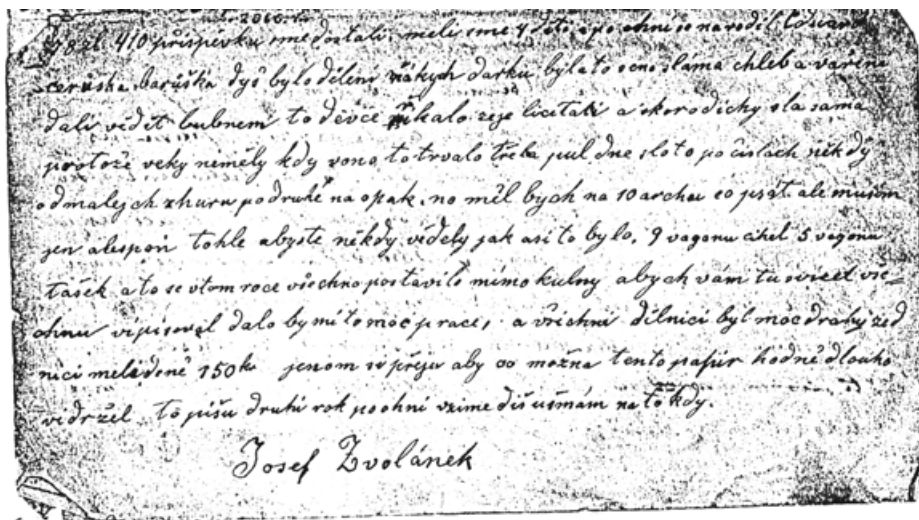 410 příspěvku sme dostali. měli sme 4 děti a po ohni se narodil Eduard
dceruška Baruška dyš bylo dělení ňákých darku byla to ocno sláma chleb a vařena
dali vědět bubnem to děvče říkalo že je licitaci a skorodichy sla sama
protože veky neměly kdy vono to trvalo třeba pul dne slo to po čislach někdy
od malejch zhuru podruhé na opak. no měl bych na 10 archu co psát ale musim
jen alespoň tohle abyste někdy věděly jak asi to bylo, 9 vagonu cihel 5 vagonu
tašek a to se vtom roce všechno postavilo mimo kulny abych vám tu
vipisoval dalo by mi to moc prace, a všichni dělnici byl moc drahy zed
nici měli deně 150 k jenom si přeju aby co možna tento papír hodně dlouho
vidržel to pišu druhi rok po ohni vzime diš ušmám na to kdy.
Josef Zvolánek